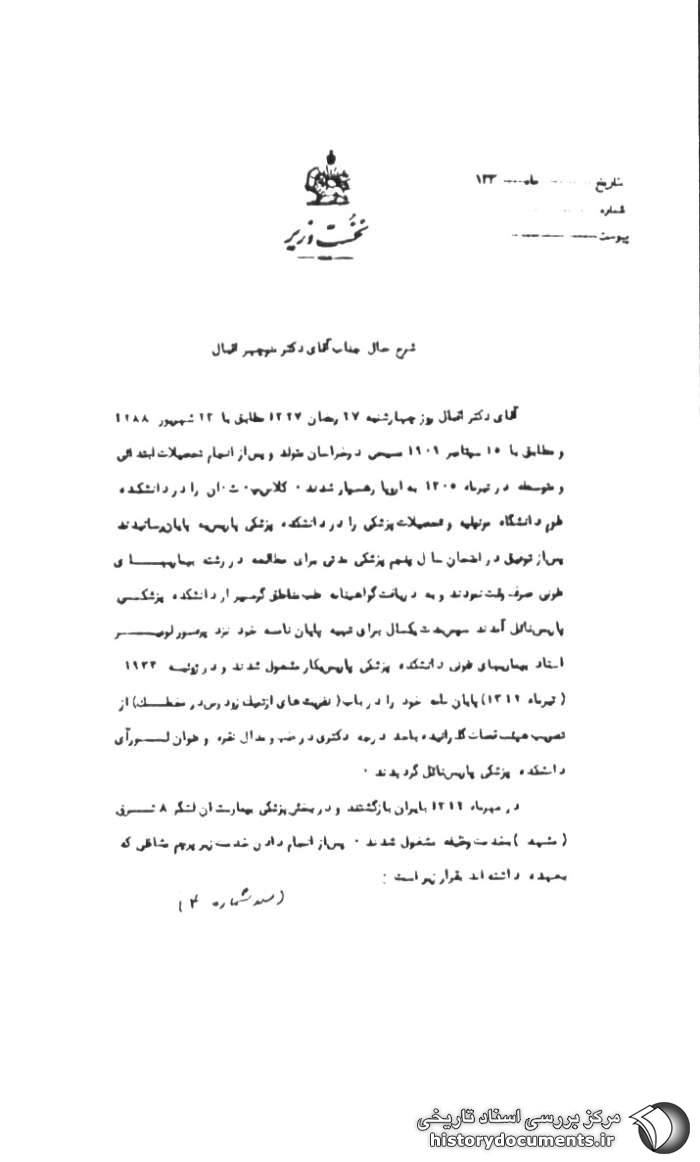 تاریخ ماه ۱۳۳
شماره
پیوست
نخست وزیر
شرح حال جناب آقای دکتر منوچهر اقبال
آقای دکتر اقبال روز چهارشنبه ۲۷ رمضان ۱۳۲۷ مطابق با ۲۲ شهریور ۱۲۸۸
و مطابق با ۱۵ سپتامبر ۱۹۰۹ مسیحی درخراسان متولد و پس از انجام تحصیلات ابتدائی
و متوسطه در تیرماه ۱۳۰۵ به اروپا رهسپار شدند ۰ کلاس پ۰ث۰ان را در دانشکده
علوم دانشگاه مونپلیه و تحصیلات پزشکی را در دانشکده پزشکی پاریس به پایان رسانیدند
پس از توفیق در امتحان سال پنجم پزشکی مدتی برای مطالعه در رشته بیماریهای
عفونی صرف وقت نمودند و به دریافت گواهینامه طب مناطق گرمسیر از دانشکده پزشکی
پاریس نائل آمدند سپس مدت یکسال برای تهیه پایان نامه خود نزد پرفسور
استاد بیماریهای عفونی دانشکده پزشکی پاریس بکار مشغول شدند و در ژوئیه ۱۹۳۳
( تیرماه ۱۳۱۲) پایان نامه خود را در باب( نفریت های ازتمیک زودرس در مخملک) از
تصویب هیئت قضات گذرانیده باخذ درجه دکتری در طب و مدال نقره و عنوان لورآی
دانشکده پزشکی پاریس نائل گردیدند ۰
در مهرماه ۱۳۱۲ بایران بازگشتند و در بخش پزشکی بیمارستان لشگر ۸ شرق
( مشهد ) بخدمت وظیفه مشغول شدند ۰ پس از انجام دادن خدمت زیر پرچم مشاغلی که
بعهده داشته اند بقرار زیر است :
(سند شماره ۴)
مرکز بررسی اسناد تاریخی
historydocuments.ir